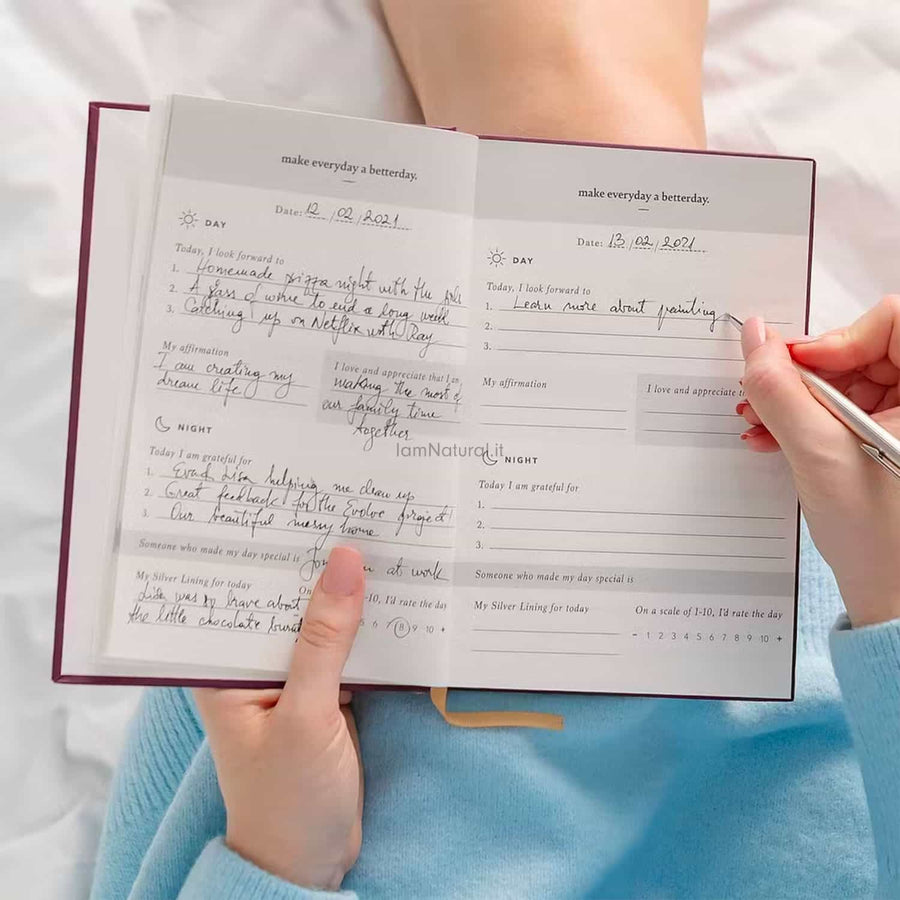 make everyday a betterday.
Date: 12 / 02 / 2021
DAY
Today, I look forward to
1. Homemade pizza night with the
2. A glass of wine to end a long week
3. Catching up on Netflix with Ray
My affirmation
I am creating my
dream life
I love and appreciate that I am
making the most of
our family time
together
NIGHT
Today I am grateful for
1. Lisa helping me clean up
2. Great feedback for the Evolve project
3. Our beautiful messy home
Someone who made my day special is at work
My Silver Lining for today
Lisa was so brave about
the little chocolate
On -10, I'd rate the day
5 6 7 8 9 10 +
make everyday a betterday.
Date: 13 / 02 / 2021
DAY
Today, I look forward to
1. Learn more about painting
2.
3.
My affirmation
I love and appreciate
IamNatural.it
NIGHT
Today I am grateful for
1.
2.
3.
Someone who made my day special is
My Silver Lining for today
On a scale of 1-10, I'd rate the day
- 1 2 3 4 5 6 7 8 9 10 +